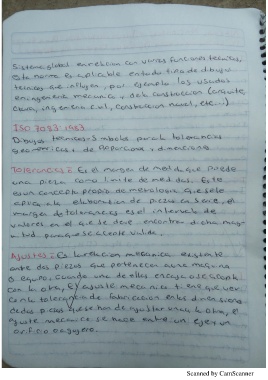 Sistema global en relacion con varias funciones tecnicas,
Esta norma es aplicable en todo tipo de dibujo
tecnicos que influyen, por ejemplo los usados
en ingenieria mecanica y de la construcción (arquite
ctura, ingenieria civil, construcion naval, etc...)
ISO 7083:1983
Dibujos tecnicos - Simbolos para la tolerancias
geometricas, de proporciones, dimensiones
Tolerancias: Es el margen de que puede
una pieza como limite de medidas. Este
es un concepto propio de metrologia que solo
aplica a la elaboracion de piezas en serie, el
margen de tolerancia es el intervalo de
valores en el que se debe encontrar dicha mag-
nitud para que se acepte valida.
Ajustes: Es la relacion mecanica existente
entre dos piezas que pertenecen a una maquina
o equipo, cuando una de ellas encaja o se acopla
con la otra, El ajuste mecanico tiene que ver
con la tolerancia de fabricacion en las dimensiones
de dos piezas que se han de ajustar una a la otra, el
ajuste mecanico se hace entre un eje y un
orificio o agujero.
Scanned by CamScanner